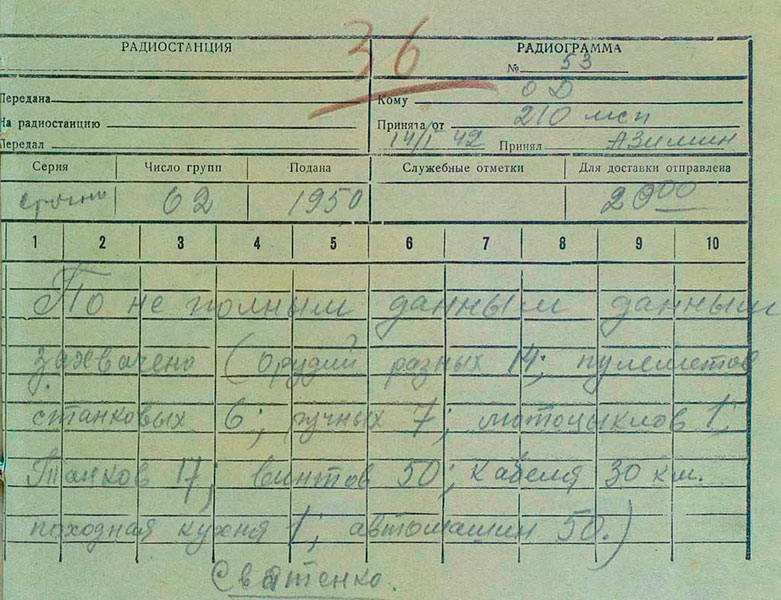 36
РАДИОСТАНЦИЯ
РАДИОГРАММА
№ 53
Передана
Кому ОД
На радиостанцию
Принята от 210 мсп
Передал
14/I 42 Принял Азимин
Серия Число групп Подана Служебные отметки Для доставки отправлена
срочно 62 1950 20 00
1 2 3 4 5 6 7 8 9 10
По не полным данным данным
захвачено (орудий разных 14; пулеметов
станковых 6; ручных 7; мотоцыклов 1;
Танков 17; винтов 50; кабеля 30 км.
походная кухня 1; автомашин 50.)
Святенко.